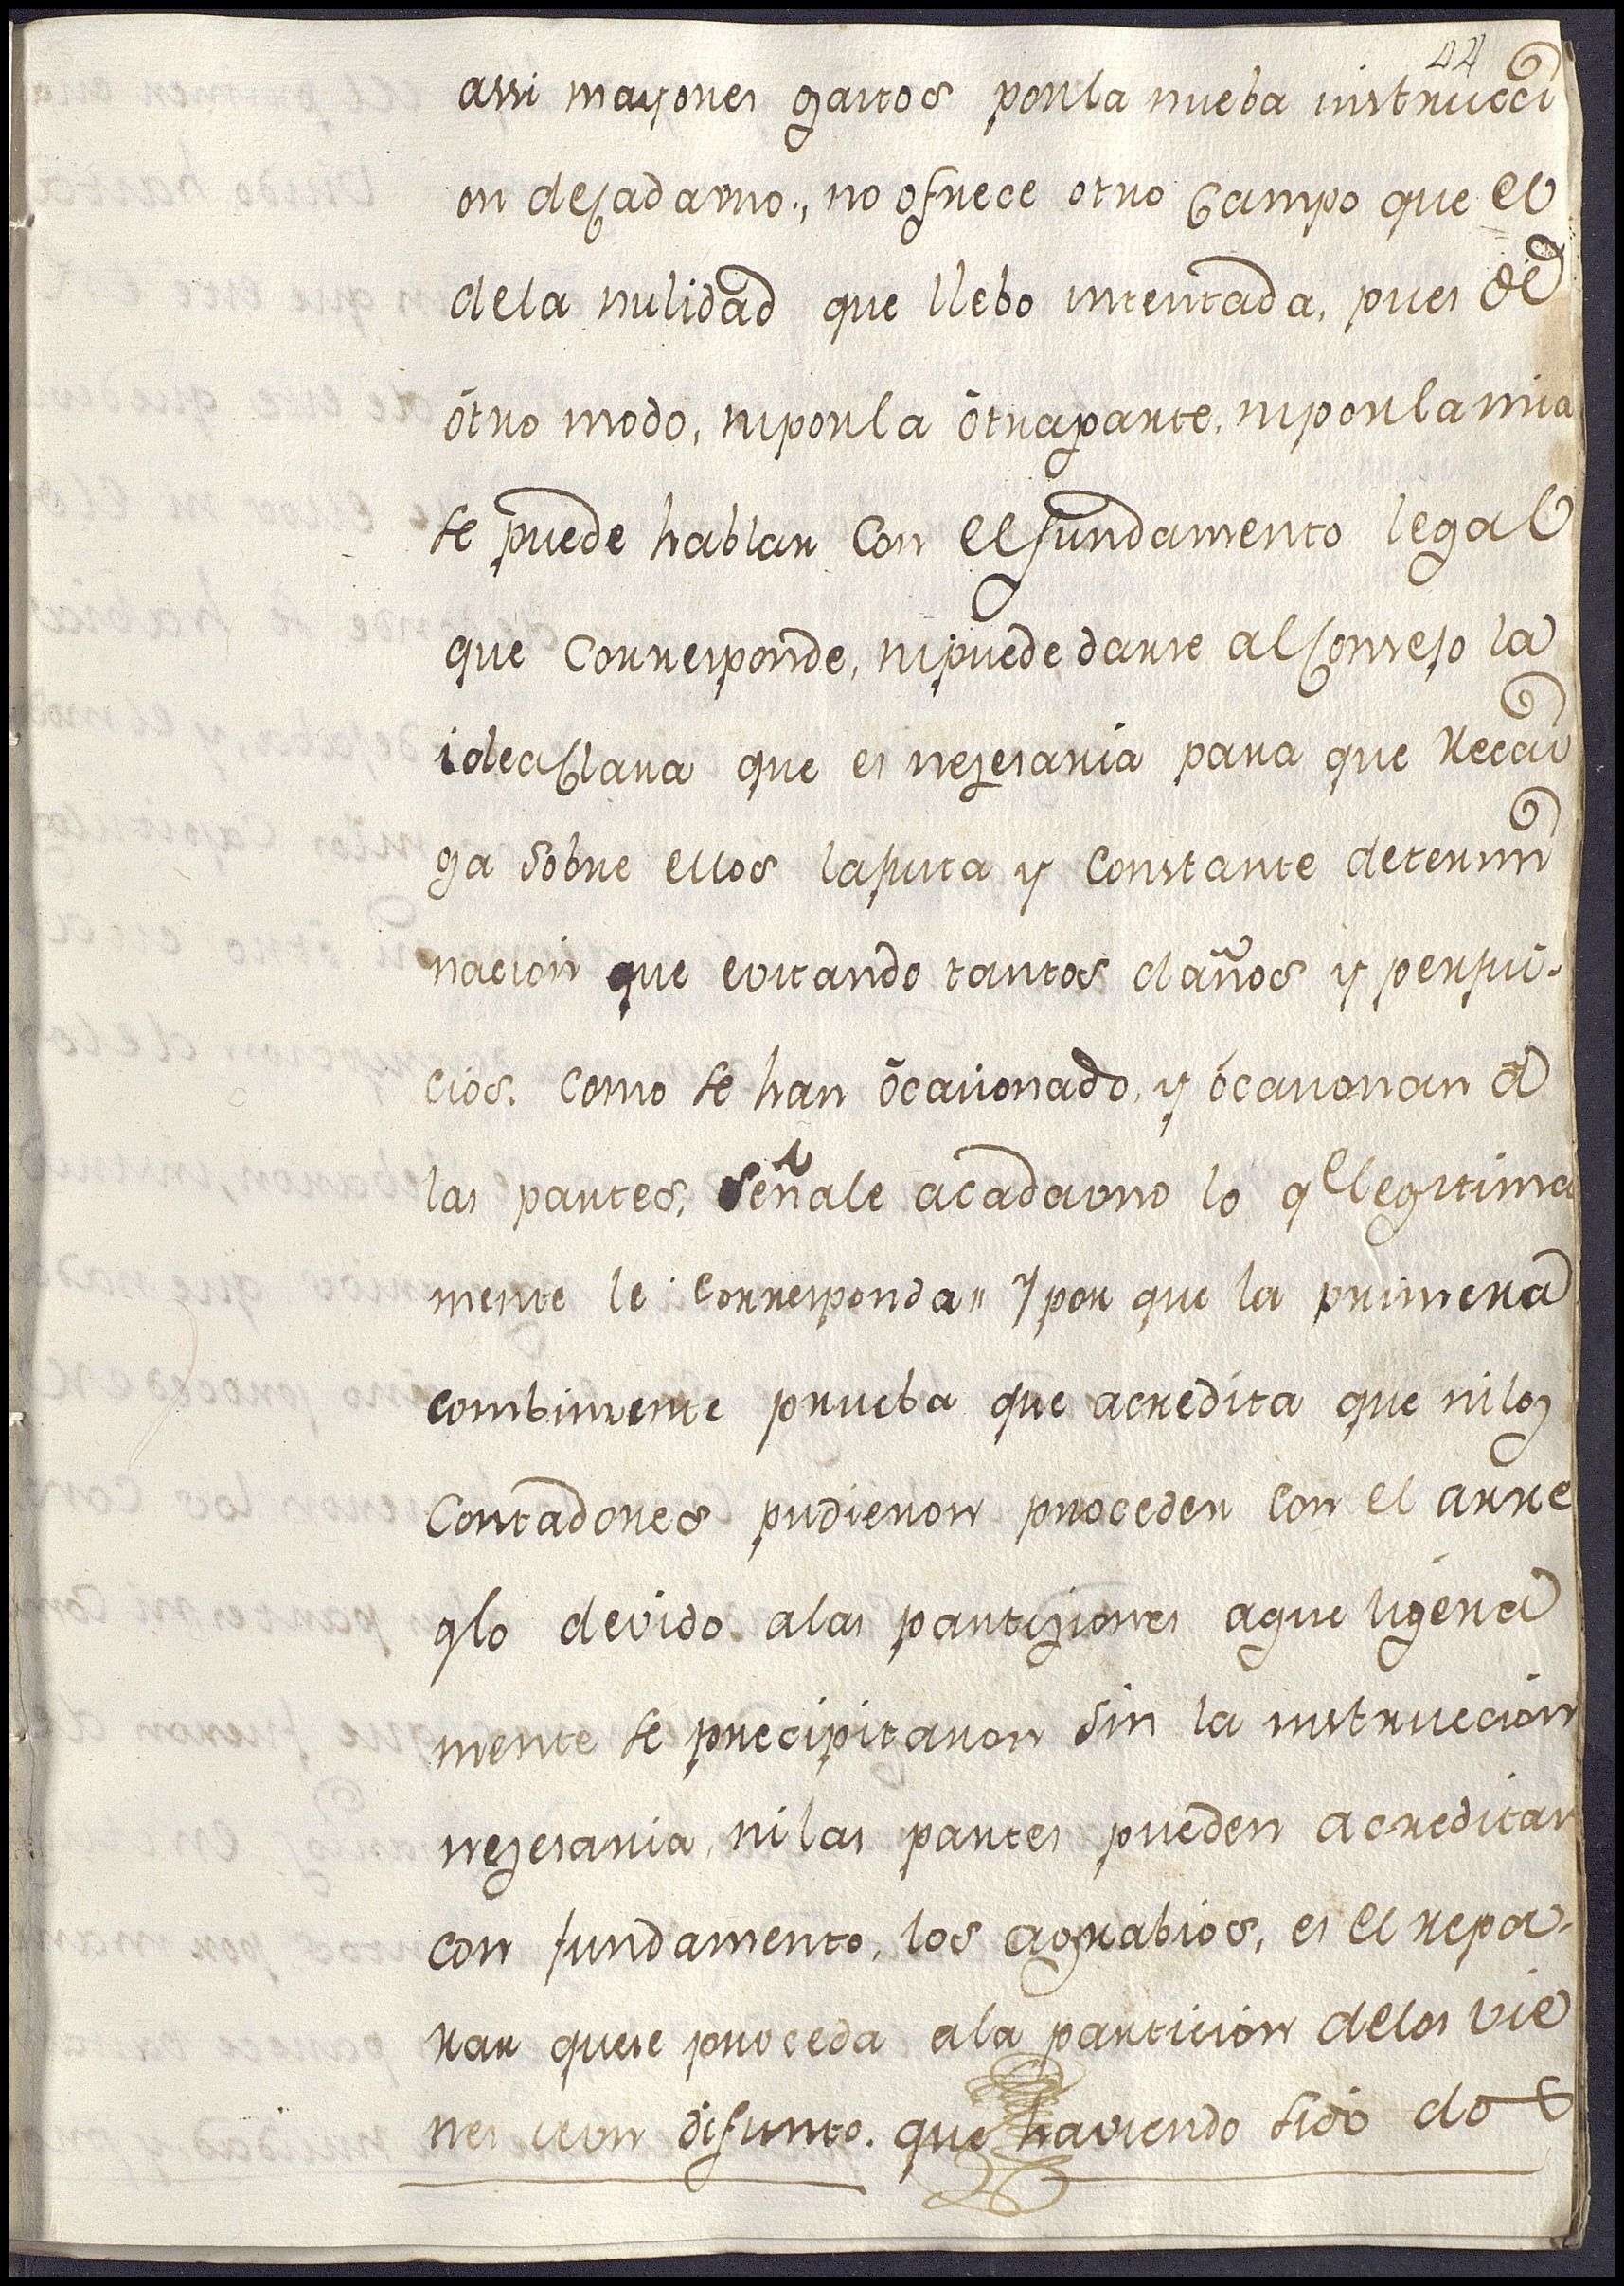 44
assi mayores gastos por la nueba instrucci
on de cada uno., no ofrece otro Campo que el
de la nulidad que llebo intentada, pues de
ótro modo, ni por la ótra parte, ni por la mia
se puede hablar Con el fundamento legal
que Corresponde, ni puede darse al Consejo la
idea Clara que es nezesaria para que recai
ga sobre ellos la justa y Constante determi
nacion que evitando tantos daños y perjui-
cios. como se han ócasionado, y ócasionan á
las partes, señale a cada uno lo qe legitima
mente le corresponda" Y por que la primera
combinsente prueba que acredita que ni los
Contadores pudieron proceder con el arre
glo devido a las partiziones a que ligera
mente se precipitaron sin la instruccion
nezesaria, ni las partes pueden acreditar
con fundamento, los agrabios, es el repa-
rar que se proceda a la particion de los vie
nes de un difunto. que haviendo sido dos